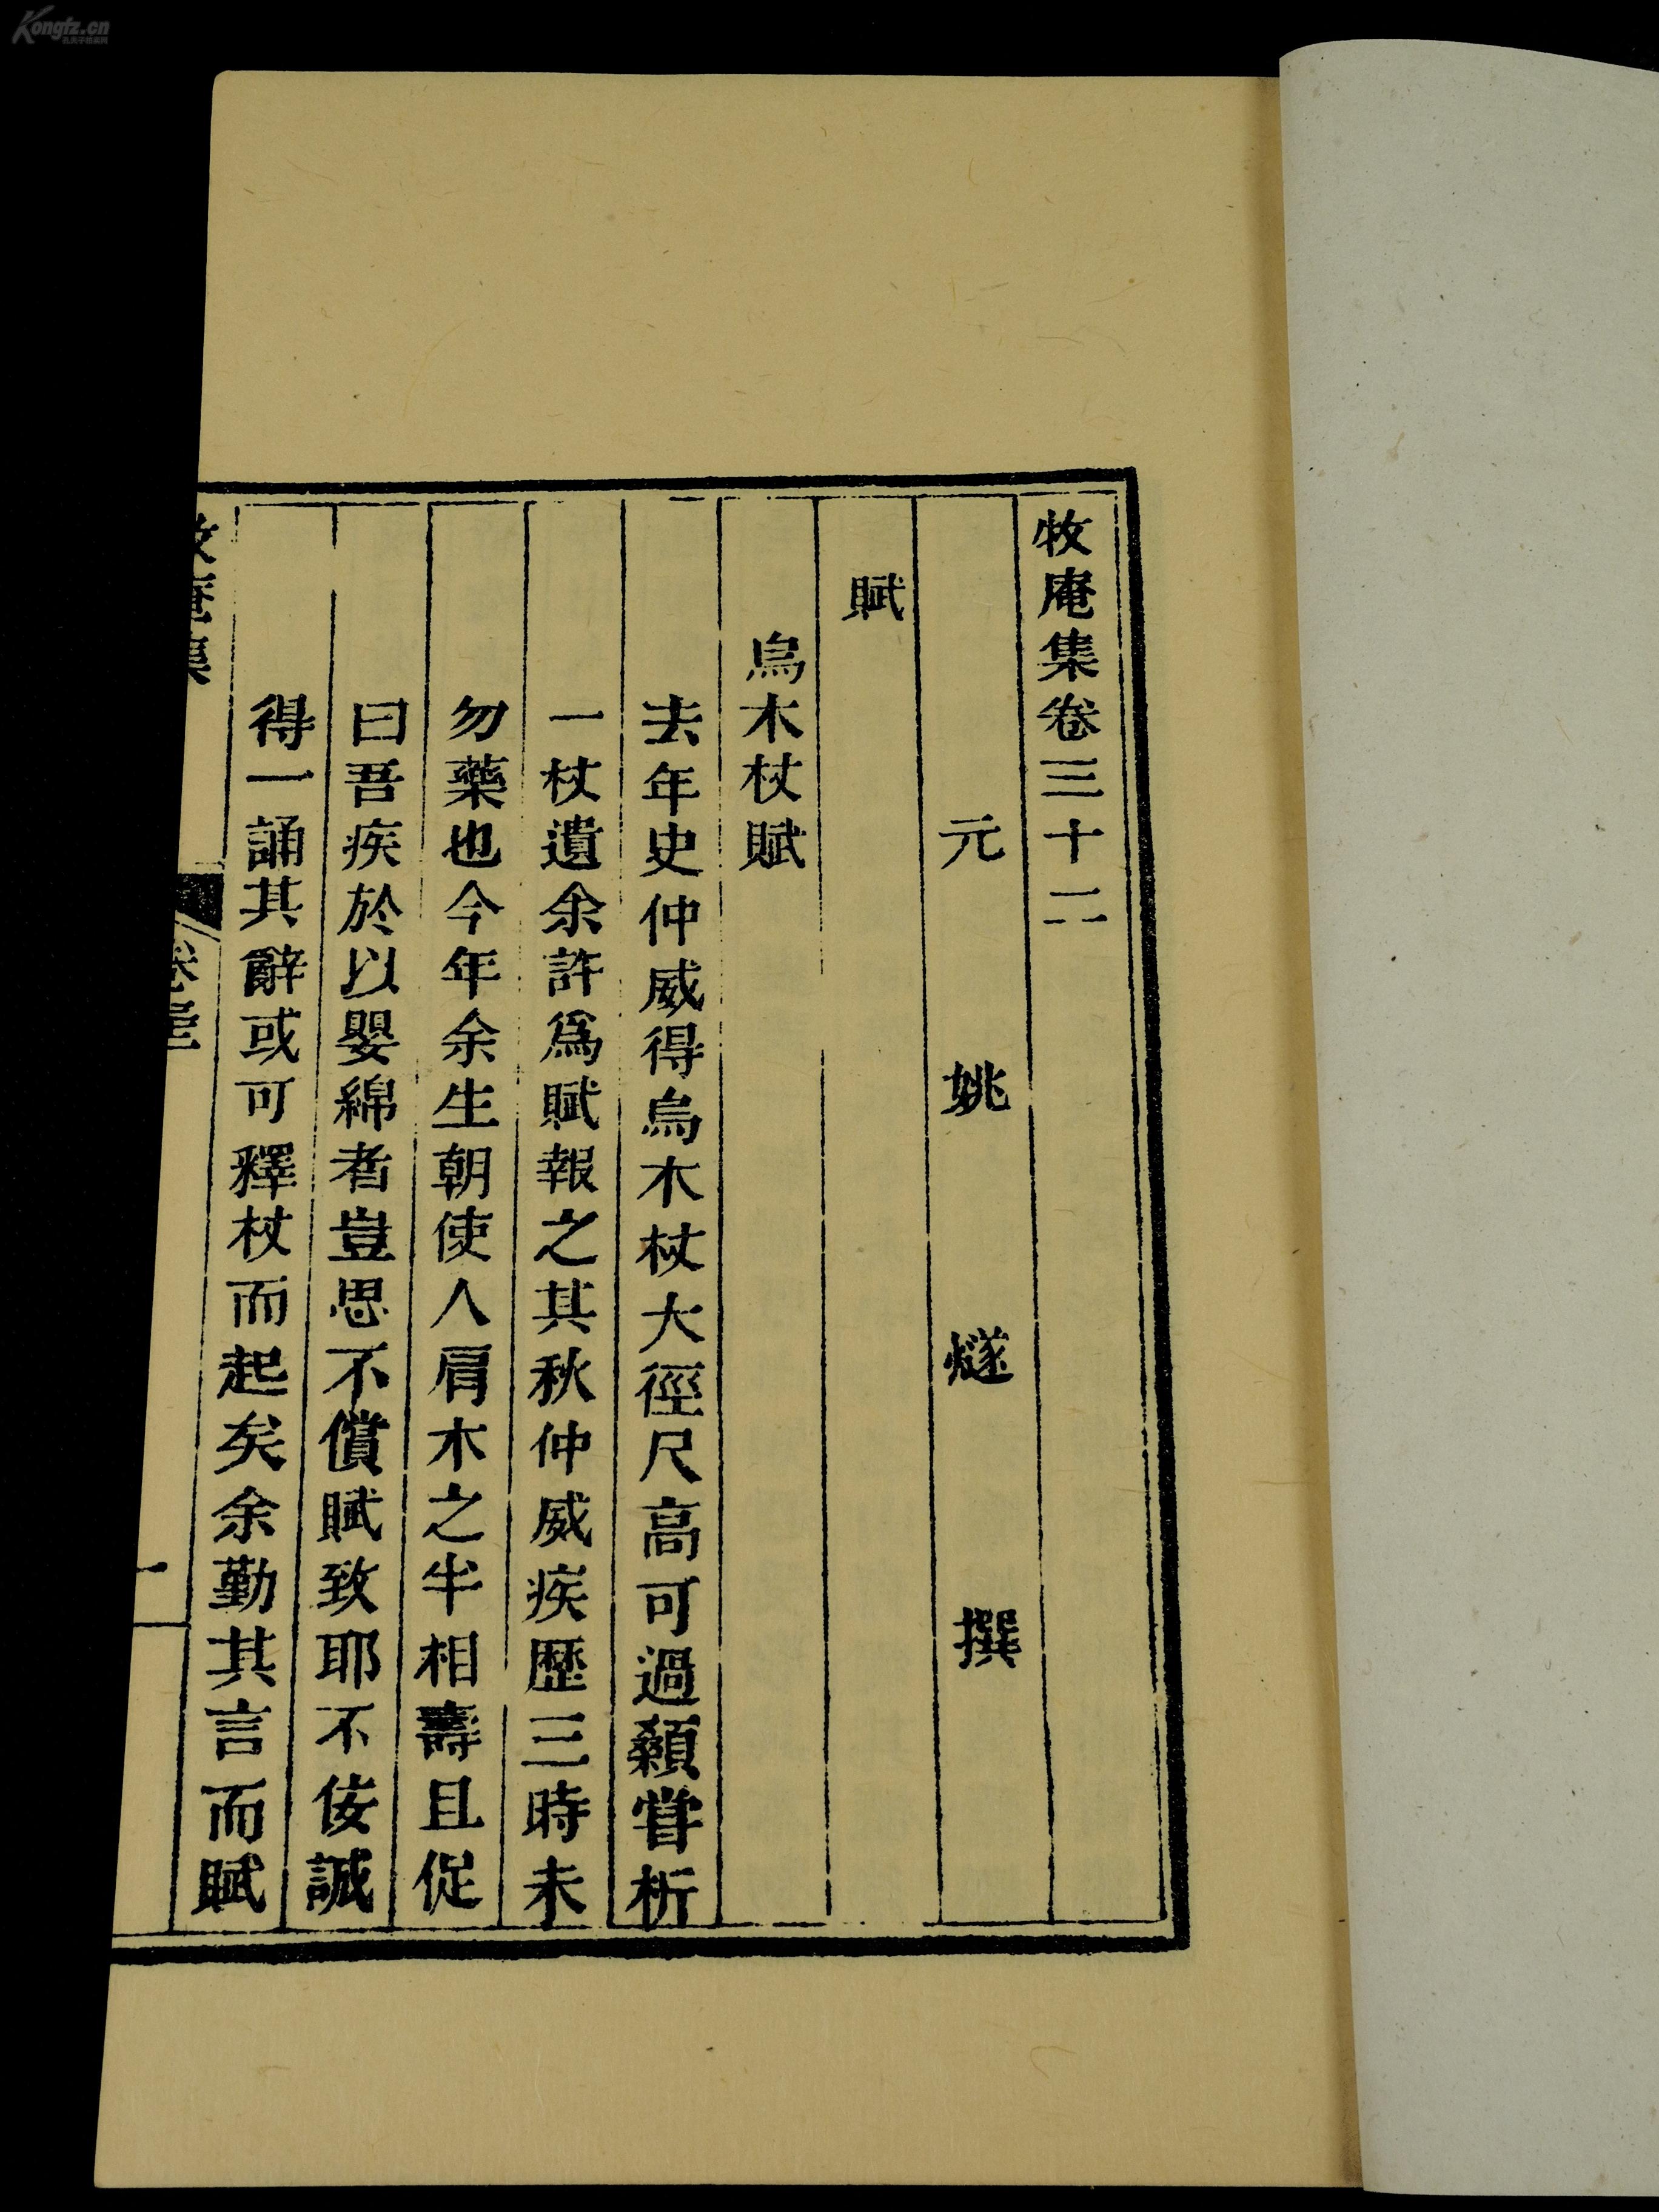 牧庵集卷三十二
元姚燧撰
賦
烏木杖賦
去年史仲威得烏木杖大徑尺高可過顙嘗析
一杖遺余許爲賦報之其秋仲威疾歷三時未
勿藥也今年余生朝使人肩木之半相壽且促
曰吾疾於以嬰綿者豈思不償賦致耶不佞誠
得一誦其辭或可釋杖而起矣余勤其言而賦
牧庵集
卷三
一
Kongfz.cn